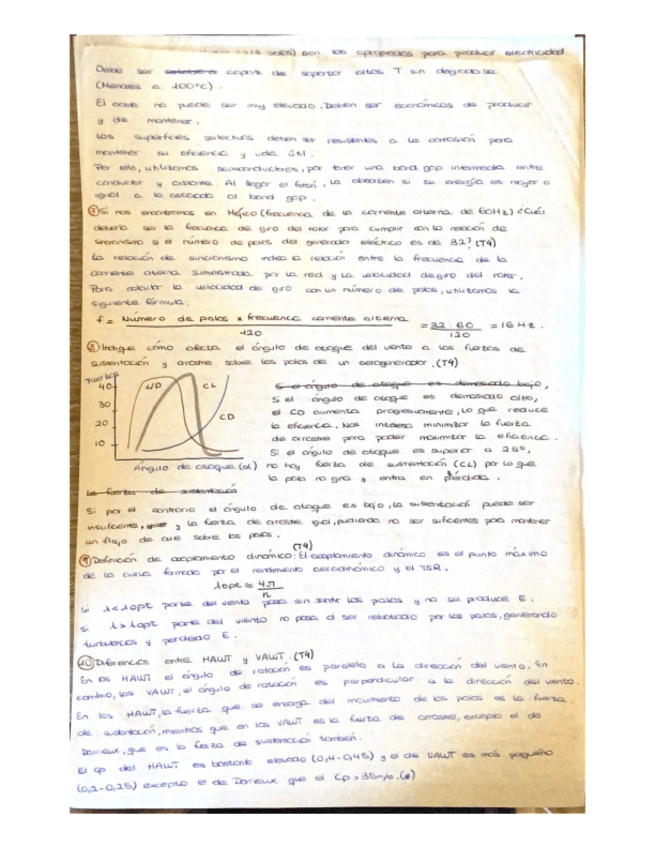 son los apropiados para producir electricidad
Debe ser capaz de soportar altas T sin degradarse
(Menores a 100ºC).
El coste no puede ser muy elevado. Deben ser económicos de producir
y de mantener.
Las superficies selectivas deben ser resistentes a la corrosión para
mantener su eficiencia y vida útil.
Por ello, utilizamos semiconductores, por tener una band gap intermedia entre
conductor y aislante. Al llegar el fotón, la absorben si su energía es mayor o
igual a la asociada al band gap.
⑦ Si nos encontramos en Méjico (frecuencia de la corriente alterna de 60Hz) ¿Cuál
debería ser la frecuencia de giro del rotor para cumplir con la relación de
sincronismo si el número de polos del generador eléctrico es de 32? (T4)
La relación de sincronismo indica la relación entre la frecuencia de la
corriente alterna suministrada por la red y la velocidad de giro del rotor.
Para calcular la velocidad de giro con un número de polos, utilizamos la
siguiente fórmula:
f = Número de polos x frecuencia corriente alterna / 120 = 32·60 / 120 = 16 Hz.
⑧ Indique cómo afecta el ángulo de ataque del viento a las fuerzas de
sustentación y arrastre sobre las palas de un aerogenerador. (T4)
Fuerzas
40
30
20
10
L/D
CL
CD
Ángulo de ataque (α)
Si el ángulo de ataque es demasiado bajo,
Si el ángulo de ataque es demasiado alto,
el CD aumenta progresivamente, lo que reduce
la eficiencia. Nos interesa minimizar la fuerza
de arrastre para poder maximizar la eficiencia.
Si el ángulo de ataque es superior a
no hay fuerza de sustentación (CL) por lo que
la pala no gira y entra en pérdida.
La fuerza de sustentación
Si por el contrario el ángulo de ataque es bajo, la sustentación puede ser
insuficiente, y la fuerza de arrastre igual, pudiendo no ser suficientes para mantener
un flujo de aire sobre las palas.
⑨ Definición de acoplamiento dinámico: El acoplamiento dinámico es el punto máximo (T4)
de la curva formada por el rendimiento aerodinámico y el TSR.
λopt ≈ 4π / n
Si λ<λopt parte del viento pasa sin sentir las palas y no se produce E.
Si λ>λopt parte del viento no pasa al ser rebotado por las palas, generando
turbulencias y perdiendo E.
⑩ Diferencias entre HAWT y VAWT. (T4)
En los HAWT el ángulo de rotación es paralelo a la dirección del viento. En
cambio, los VAWT, el ángulo de rotación es perpendicular a la dirección del viento.
En los HAWT, la fuerza que se encarga del movimiento de las palas es la fuerza
de sustentación, mientras que en los VAWT es la fuerza de arrastre, excepto el de
Darrieux, que es la fuerza de sustentación también.
El Cp del HAWT es bastante elevado (0,4-0,45) y el de VAWT es más pequeño
(0,2-0,25) excepto el de Darieux que el Cp > 35%.